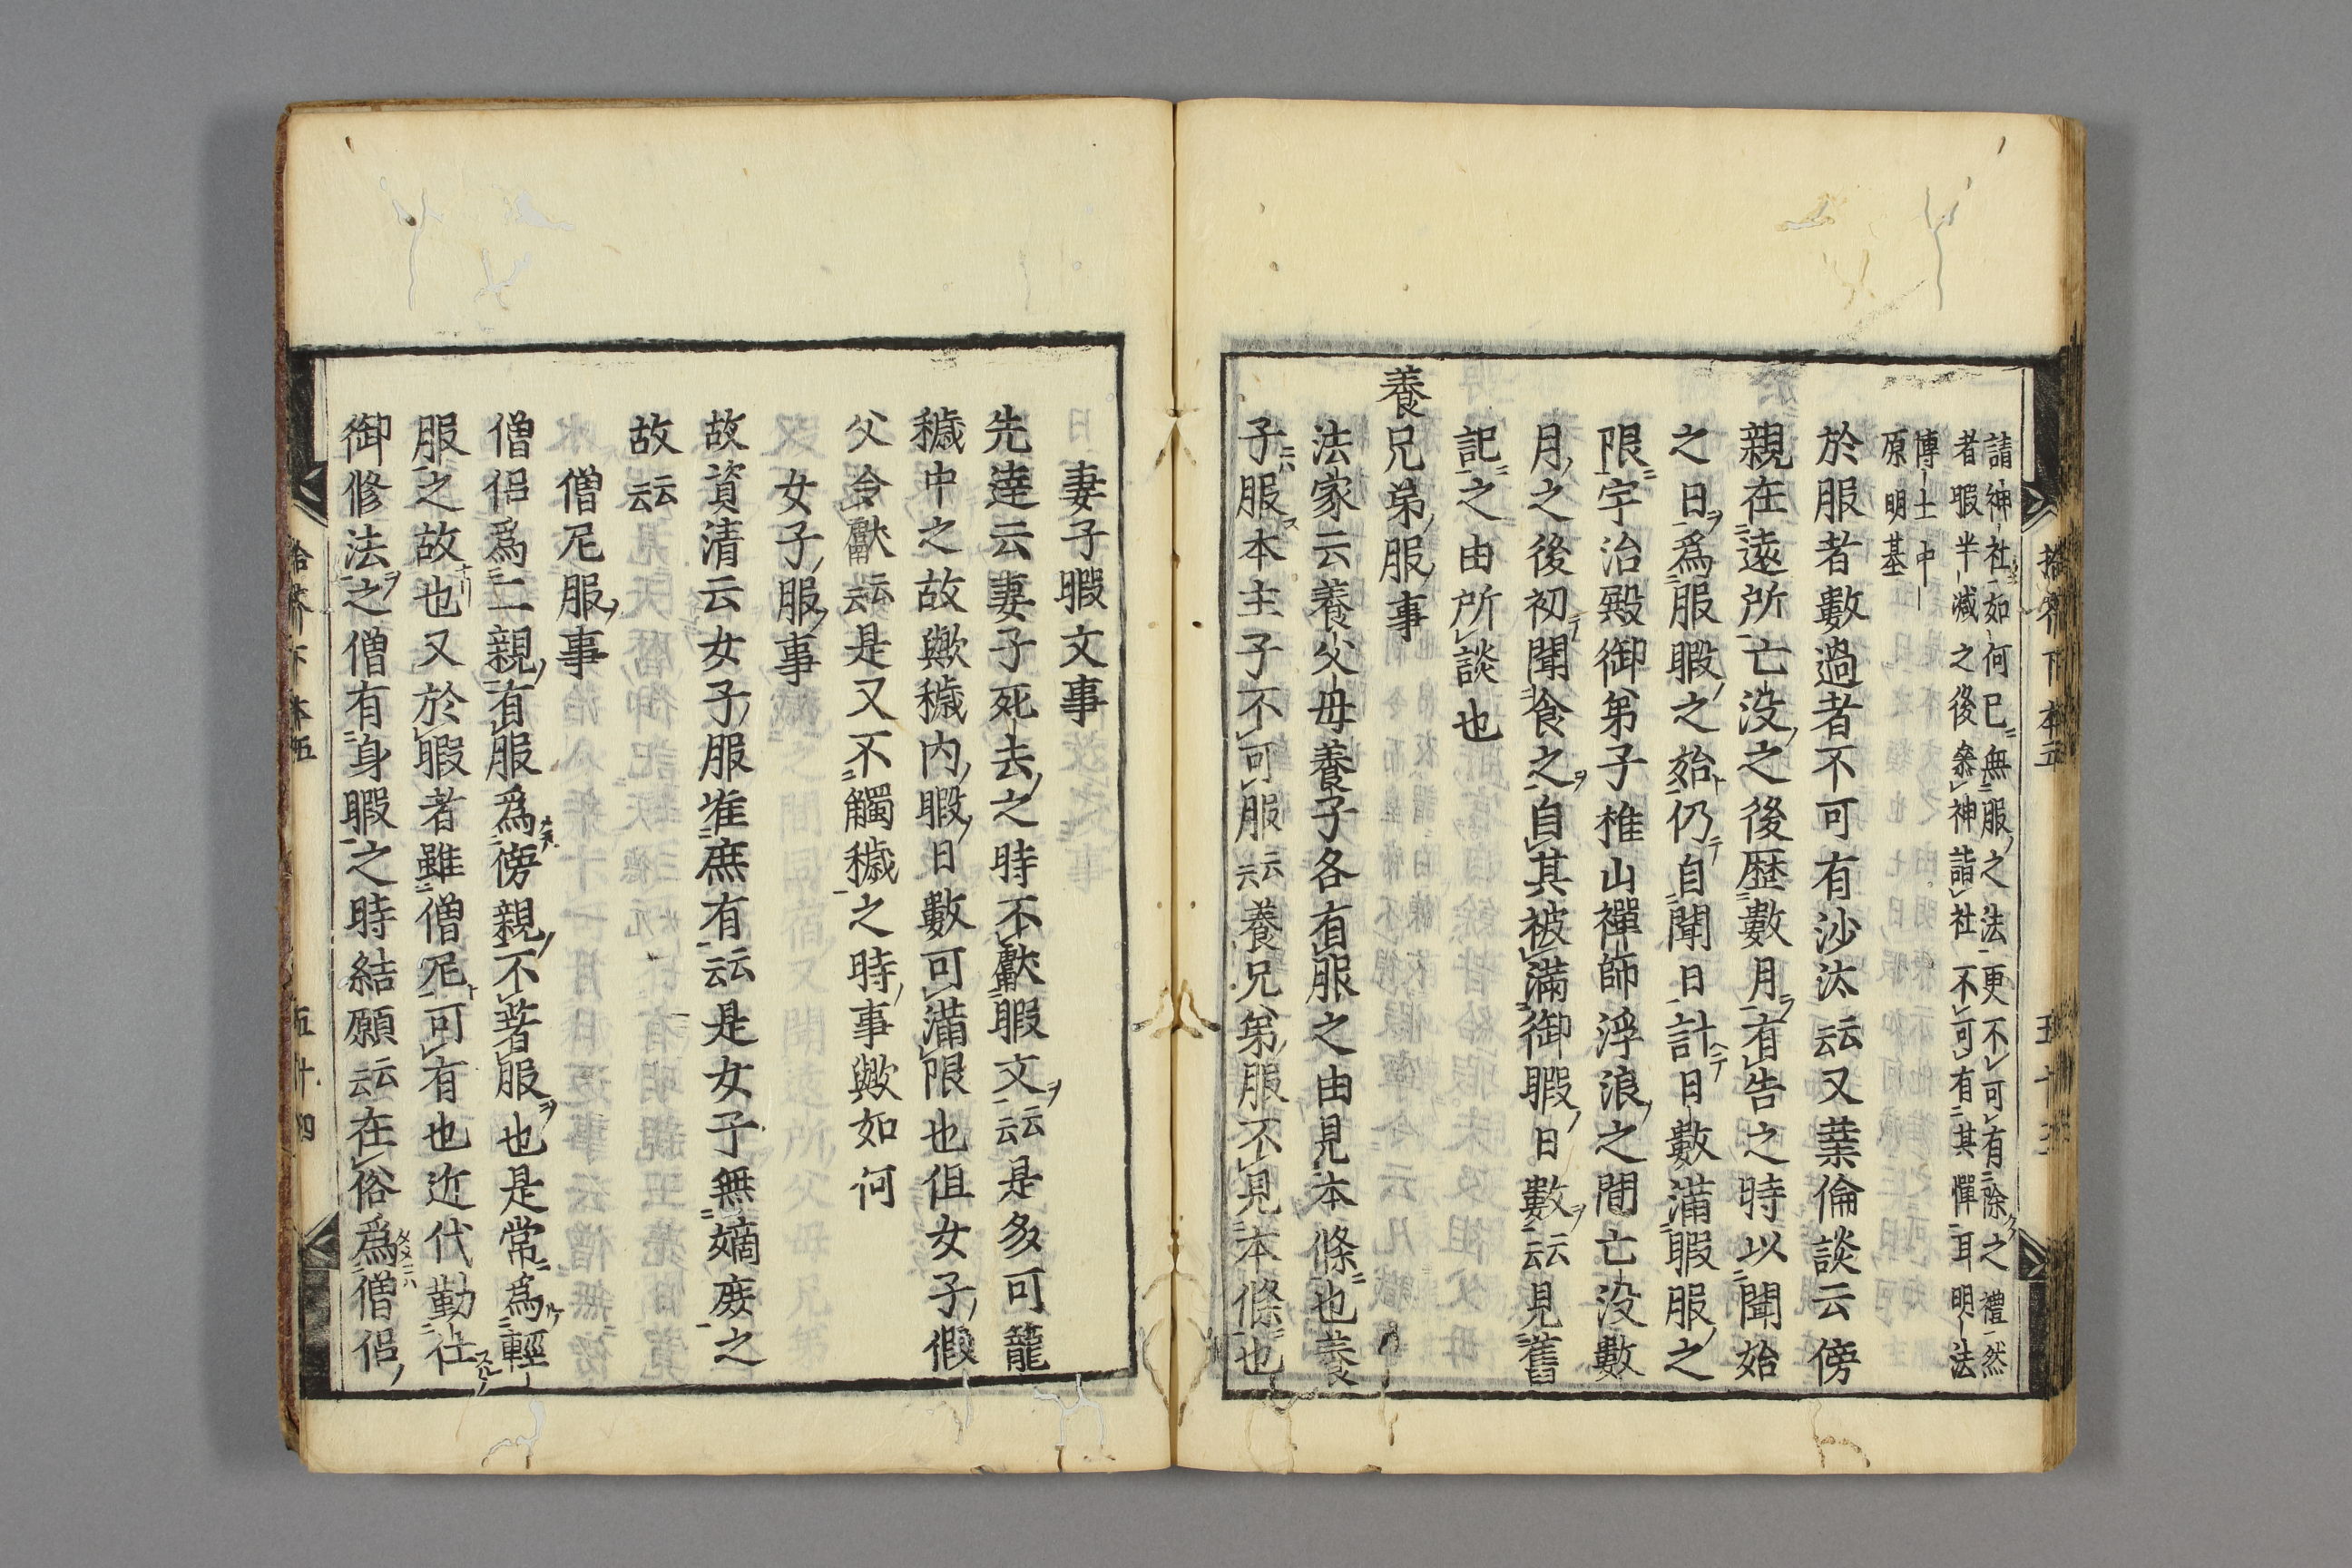 請神社如何已無服之法更不可有除之禮然
者暇半減之後叅神詣社不可有其憚耳明法
博士中
原明基
於服者數過者不可有沙汰云云又葉倫談云傍
親在遠所亡没之後歷數月有告之時以聞始
之日爲服暇之始仍自聞日計日數満暇服之
限宇治殿御弟子椎山禪師浮浪之間亡没數
月之後初聞食之自其被満御暇日數云云見舊
記之由所談也
養兄弟服事
法家云養父母養子各有服之由見本條也養
子服本主子不可服云云養兄弟服不見本條也
拾芥下本五
五十三
妻子暇文事
先達云妻子死去之時不獻暇文云云是多可籠
穢中之故歟穢内暇日數可満限也但女子假
父令獻云云是又不觸穢之時事歟如何
女子服事
故資清云女子服准庶有云云是女子無嫡庶之
故云云
僧尼服事
僧侶爲二親有服爲傍親不著服也是常爲輕
服之故也又於暇者雖僧尼可有也近代勤仕
御修法之僧有身暇之時結願云云在俗爲僧侶
拾芥下本五
五十四